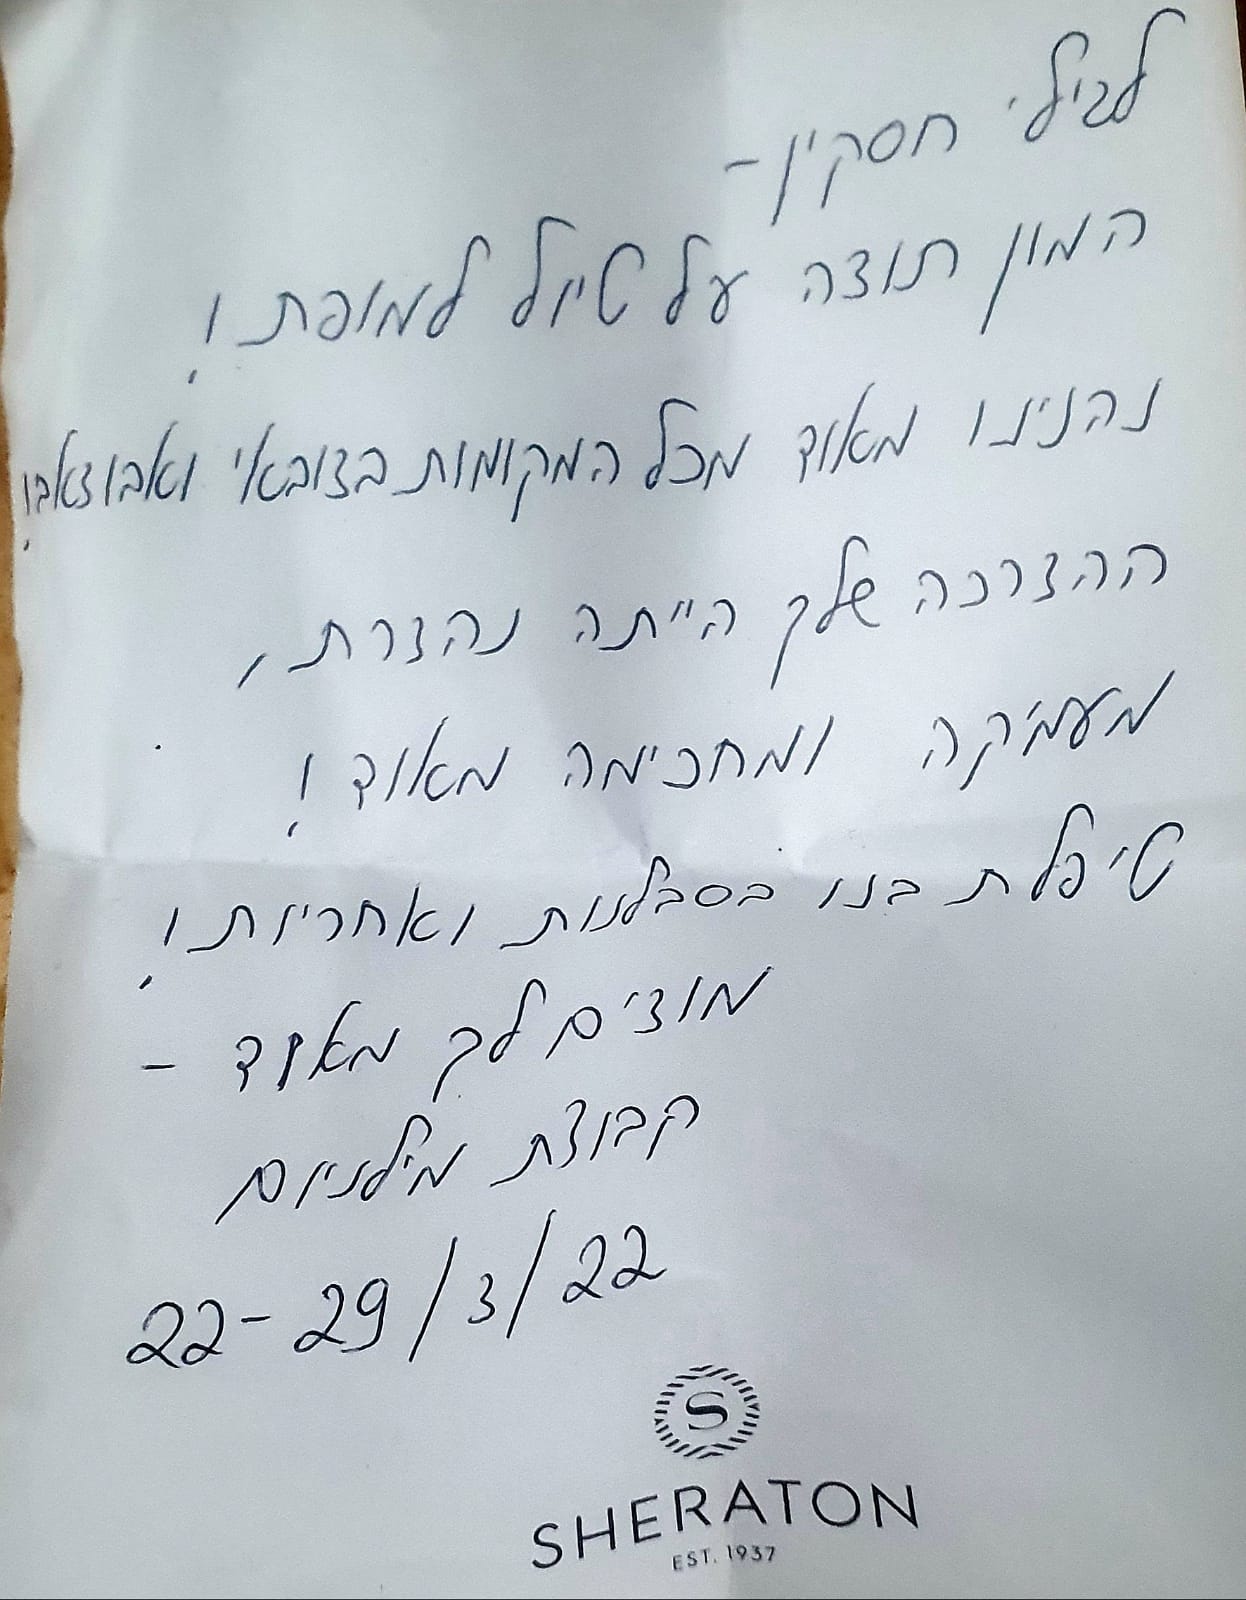 לגילי חסקין -
המון תודה על טיול למופת!
נהנינו מאוד מכל המקומות בדובאי ואבו דאבי!
ההדרכה שלך הייתה נהדרת,
מעמיקה ומחכימה מאוד!
טיפלת בנו בסבלנות ואחריות!
מודים לך מאוד -
קבוצת מילניום
22-29/3/22
S
SHERATON
EST. 1937